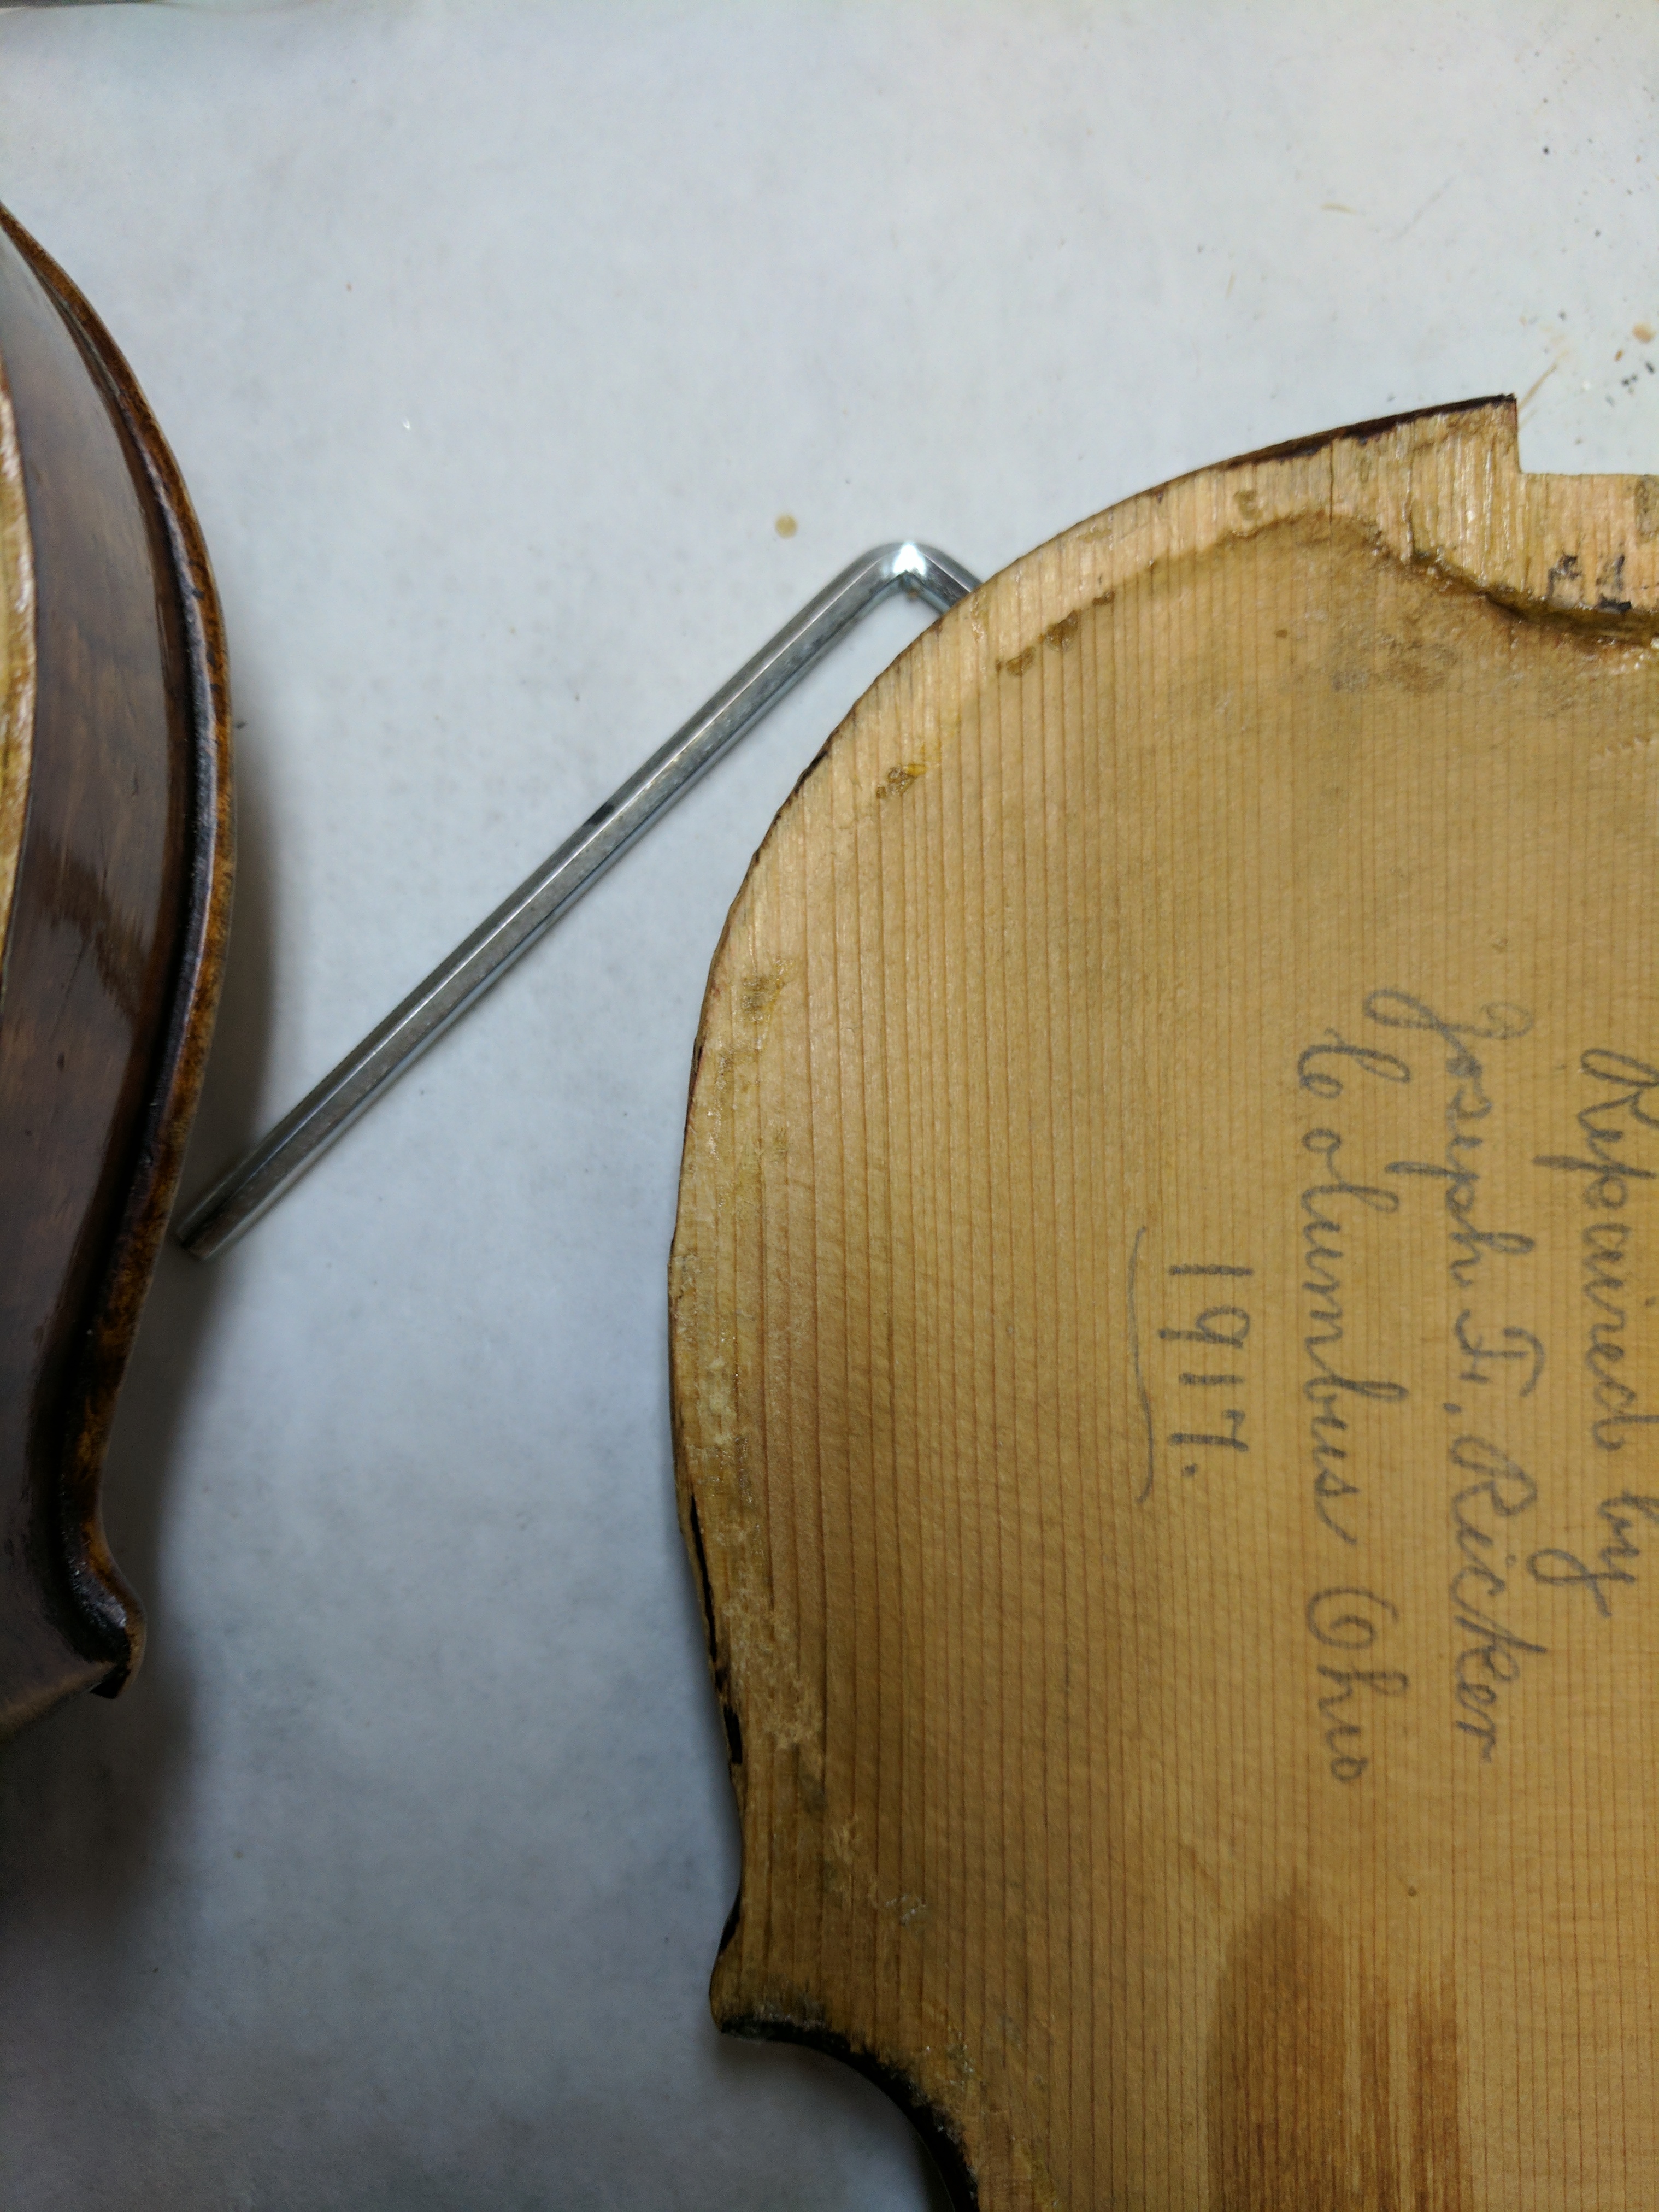 Repaired by
Joseph F. Reicker
Columbus Ohio
1917.